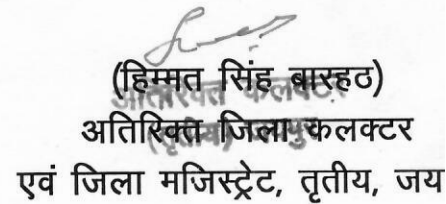 (हिम्मत सिंह बारहठ)
अतिरिक्त जिला कलक्टर
एवं जिला मजिस्ट्रेट, तृतीय, जय